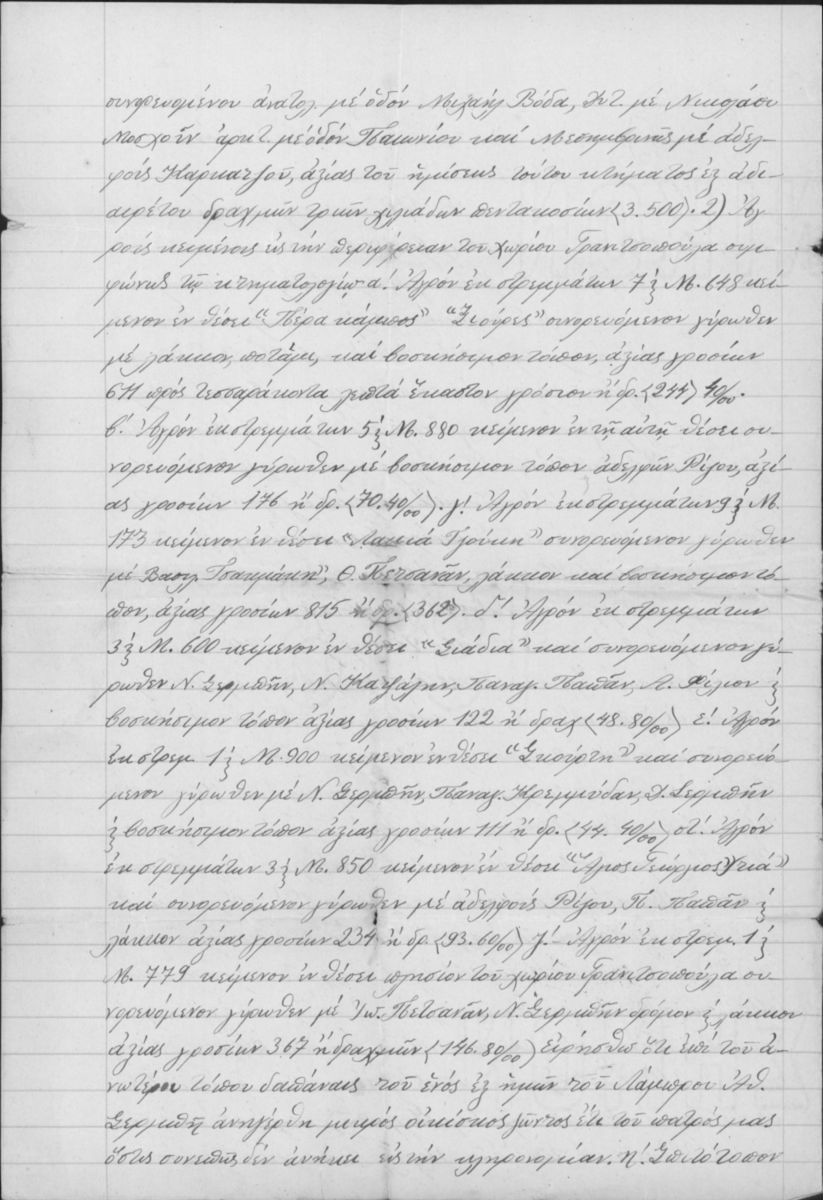 συνορευομένου ἀνατολ. μέ ὁδόν Μιχαήλ Βόδα, Δυτ. μέ Νικολάου
Μοσχοῦν ἀρκτ. μέ ὁδόν Παιωνίου καί Μεσημβρινῶς μέ ἀδελ-
φούς Καρκατζοῦ, ἀξίας τοῦ ἡμίσεως τούτου κτήματος ἐξ ἀδι-
αιρέτου δραχμῶν τριῶν χιλιάδων πεντακοσίων (3.500). 2) Ἀγ
ρούς κειμένους εἰς τήν περιφέρειαν τοῦ χωρίου Γρανιτσοπούλα συμ-
φώνως τῷ κτηματολογίῳ α! Ἀγρόν ἐκ στρεμμάτων 7 ξ Μ. 648 κεί-
μενον ἐν θέσει "Πέρα κάμπος" "Σιούρες" συνορευόμενον γύρωθεν
μέ λάκκον, ποτάμι, καί βοσκήσιμον τόπον, ἀξίας γροσίων
611 πρός τεσσαράκοντα λεπτά ἕκαστον γρόσιον ἤ δρ. (244) 40/00.
β! Ἀγρόν ἐκ στρεμμάτων 5 ξ Μ. 880 κείμενον ἐν τῇ αὐτῇ θέσει συ-
νορευόμενον γύρωθεν μέ βοσκήσιμον τόπον ἀδελφῶν Ρίζου, ἀξί-
ας γροσίων 176 ἤ δρ. (70.40/00). γ! Ἀγρόν ἐκ στρεμμάτων 9 ξ Μ.
173 κείμενον ἐν θέσει "Λακιά Τζούκη" συνορευόμενον γύρωθεν
μέ Βασιλ. Τσακμάκην, Θ. Πετσανᾶν, λάκκον καί βοσκήσιμον τό-
πον, ἀξίας γροσίων 815 ἤ δρ. (362). δ! Ἀγρόν ἐκ στρεμμάτων
3 ξ Μ. 600 κείμενον ἐν θέσει "Σιάδια" καί συνορευόμενον γύ-
ρωθεν Ν. Σερμπῆν, Ν. Κατζάλην, Παναγ. Παππᾶν, Λ. ξ
βοσκήσιμον τόπον ἀξίας γροσίων 122 ἤ δραχ (48.80/00) ε! Ἀγρόν
ἐκ στρεμ. 1 ξ Μ. 900 κείμενον ἐν θέσει "Σκούρτη" καί συνορευό-
μενον γύρωθεν μέ Ν. Σερμπῆν, Παναγ. Κρεμμύδαν, Δ. Σερμπῆν
ξ βοσκήσιμον τόπον ἀξίας γροσίων 111 ἤ δρ. (44. 40/00) στ! Ἀγρόν
ἐκ στρεμμάτων 3 ξ Μ. 850 κείμενον ἐν θέσει "Ἅγιος Γεώργιος
καί συνορευόμενον γύρωθεν μέ ἀδελφούς Ρίζου, Π. Παππᾶν ξ
λάκκον ἀξίας γροσίων 234 ἤ δρ. (93.60/00) ζ! Ἀγρόν ἐκ στρεμ. 1 ξ
Μ. 779 κείμενον ἐν θέσει πλησίον τοῦ χωρίου Γρανιτσοπούλα συ-
νορευόμενον γύρωθεν μέ Ἰω. Πετσανᾶν, Ν. Σερμπῆν δρόμον ξ λάκκον
ἀξίας γροσίων 367 ἤ δραχμῶν (146.80/00) εἰρήσθω ὅτι ἐπί τοῦ ἀ-
νωτέρου τόπου δαπάναις τοῦ ἑνός ἐξ ἡμῶν τοῦ Λάμπρου Ἀθ.
Σερμπῆ ἀνηγέρθη μικρός οἰκίσκος ζῶντος ἔτι τοῦ πατρός μας
ὅστις συνεπῶς δέν ἀνήκει εἰς τήν κληρονομίαν. η! Σπιτότοπον